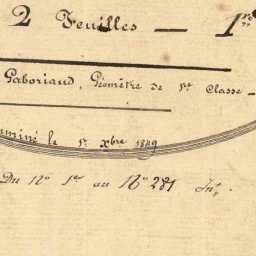 2 Feuilles — 1re
Gaboriaud, Géomètre de 1re Classe —
miné le 1r Xbre 1849
Du No 1er au No 281 Inf.